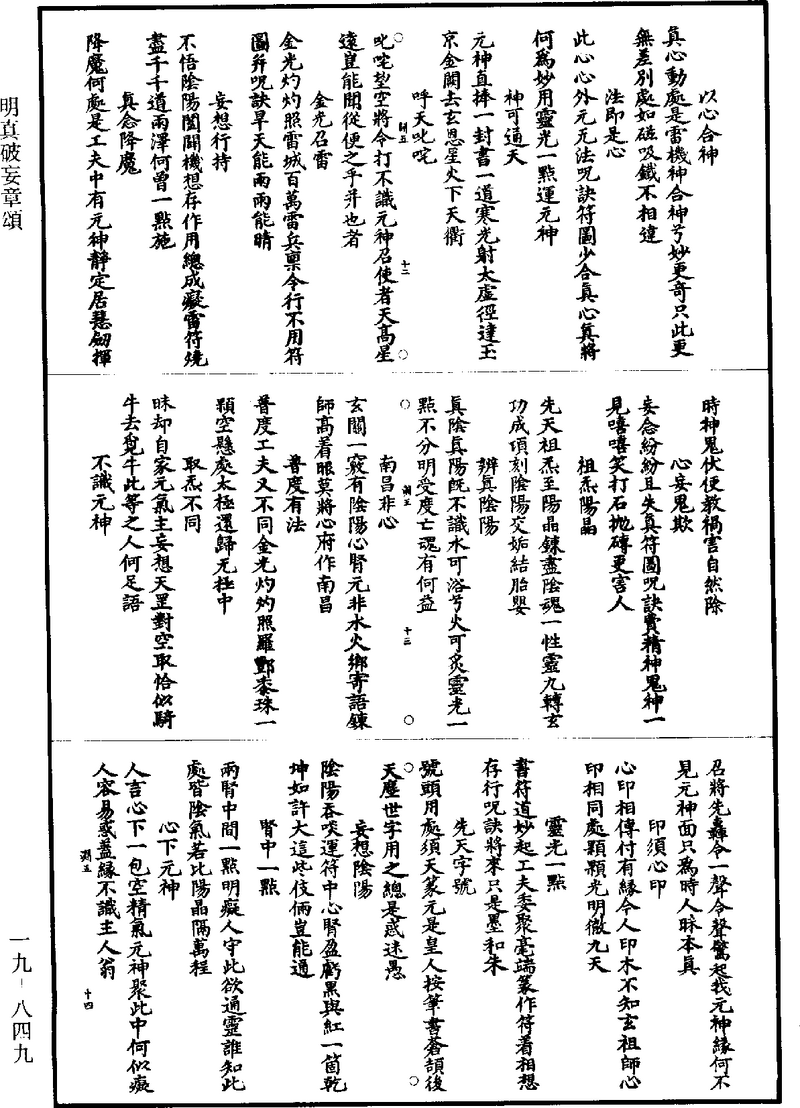 以心合神
真心動處是雷機神合神兮妙更奇只此更
無差別處如磁吸鐵不相違
法即是心
此心心外元无法呪訣符圖少合真心真將
何為妙用靈光一點運元神
神可通天
元神直捧一封書一道寒光射太虛徑達玉
京金闕去玄恩星火下天衢
呼天叱咤
叱咤望空將令打不識元神召使者天高星
遠豈能聞從便之乎并也者
金光召雷
金光灼灼照雷城百萬雷兵稟令行不用符
圖并呪訣旱天能雨雨能晴
妄想行持
不悟陰陽闔闢機想存作用總成癡雷符燒
盡千千道雨澤何曾一點施
真念降魔
降魔何處是工夫中有元神靜定居慧劒揮
時神鬼伏便教禍害自然除
心妄鬼欺
妄念紛紛且失真符圖呪訣費精神鬼神一
見嘻嘻笑打石拋磚更害人
祖炁陽晶
先天祖炁至陽晶鍊盡陰魂一性靈九轉玄
功成頃刻陰陽交姤結胎嬰
辨真陰陽
真陰真陽既不識水可浴兮火可炙靈光一
點不分明受度亡魂有何益
南昌非心
玄關一竅有陰陽心腎元非水火鄉寄語鍊
師高着眼莫將心府作南昌
普度有法
普度工夫又不同金光灼灼照羅酆黍珠一
顆空懸處太極還歸无極中
取炁不同
昧却自家元氣主妄想天罡對空取恰似騎
牛去覓牛此等之人何足語
不識元神
召將先轟令一聲令聲驚起我元神緣何不
見元神面只為時人昧本真
印須心印
心印相傳付有緣令人印木不知玄祖師心
印相同處顆顆光明徹九天
靈光一點
書符道妙起工夫委聚毫端篆作符着相想
存行呪訣將來只是墨和朱
先天字號
號頭用處須天篆元是皇人按筆書蒼頡後
天塵世字用之總是惑迷愚
妄想陰陽
陰陽吞啖運符中心腎盈虧黑與紅一箇乾
坤如許大這些伎倆豈能通
腎中一點
兩腎中間一點明癡人守此欲通靈誰知此
處皆陰氣若比陽晶隔萬程
心下元神
人言心下一包空精氣元神聚此中何似癡
人容易惑蓋緣不識主人翁
十二
十三
十四
明真破妄章頌
一九－八四九